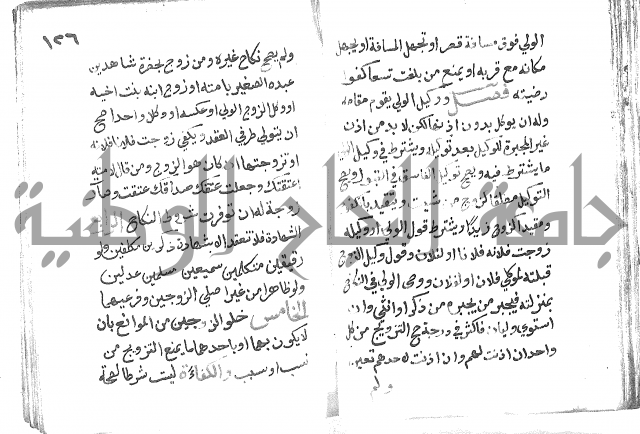 الولي فوق مسافة قصر او تجهل المسافة او يجهل
مكانه مع قربه او يمنع من بلغت تسعا كفوا
رضيته فصل ووكيل الولي يقوم مقامه
وله ان يوكل بدون اذنها لكن لا بد من اذن
غير المجبرة للوكيل بعد توكيله ويشترط في وكيل الولي
ما يشترط فيه ويصح توكيل الفاسق في القبول ويصح
التوكيل مطلقا كزوج من شئت ويتقيد بالكفو
ومقيدا كزوج زيدا ويشترط قول الولي او وكيله
زوجت فلانه فلانا او لفلان وقول وكيل الزوج
قبلته لموكلي فلان او لفلان ووصي الولي في النكاح
بمنزلته فيجبر من يجبره من ذكر او انثى وان
استوى وليان فاكثر في درجة صح التزويج من كل
واحد ان اذنت لهم وان اذنت لاحدهم تعين
ولم
١٣٦
ولم يصح نكاح غيره ومن زوج بحضرة شاهدين
عبده الصغير بامته او زوج ابنه بنت اخيه
او وكل الزوج الولي او عكسه او وكلا واحدا صح
ان يتولى طرفي العقد ويكفي زوجت فلانا فلانة
او تزوجتها اذا كان هو الزوج ومن قال لامته
اعتقتك وجعلت عتقك صداقك عتقت وصارت
زوجة له ان توفرت شروط النكاح الرابع
الشهادة فلا ينعقد الا بشهادة ذكرين مكلفين ولو
رقيقين متكلمين سميعين مسلمين عدلين
ولو ظاهرا من غير اصلي الزوجين وفرعيهما
الخامس خلو الزوجين من الموانع بان
لا يكون بهما او باحدهما ما يمنع التزويج من
نسب او سبب والكفاءة ليست شرطا لصحة
جامعة النجاح الوطنية